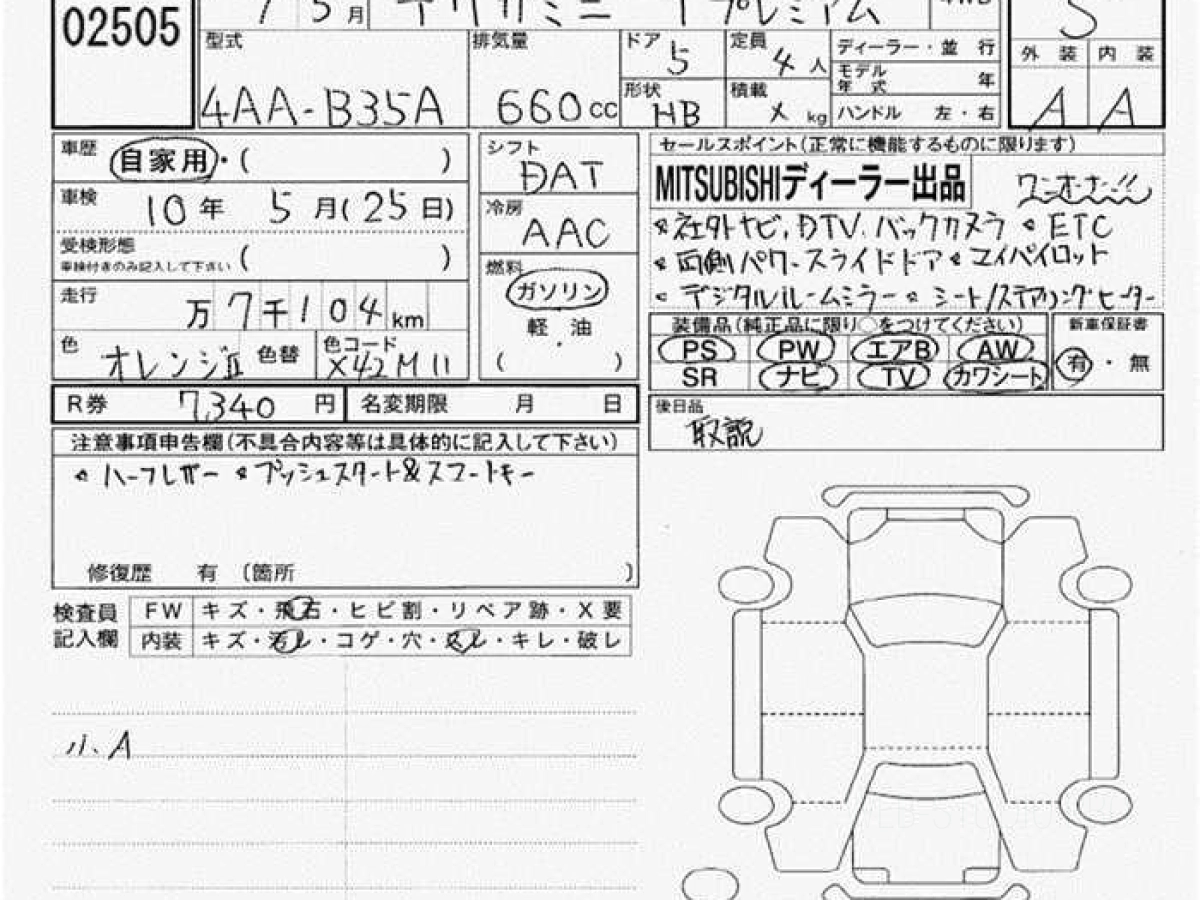 02505
7 5月 デリカミニ T プレミアム 4WD S
型式 4AA-B35A
排気量 660cc
ドア 5
定員 4人
形状 HB
積載 X kg
ディーラー・並行
モデル年式 年
ハンドル 左・右
外装 内装
A A
車歴 自家用・( )
車検 10年 5月(25日)
受検形態
車検付きのみ記入して下さい ( )
走行 万7千104km
色 オレンジⅡ 色替
色コード X42M 11
シフト DAT
冷房 AAC
燃料 ガソリン
軽.油
( )
セールスポイント(正常に機能するものに限ります)
MITSUBISHIディーラー出品 ワンオーナー!!
*社外ナビ,DTV,バックカメラ *ETC
*両側パワースライドドア*マイパイロット
*デジタルルームミラー*シート/ステアリングヒーター
装備品(純正品に限り○をつけてください)
PS PW エアB AW
SR ナビ TV カワシート
新車保証書
有・無
R券 7,340円
名変期限 月 日
後日品
取説
注意事項申告欄(不具合内容等は具体的に記入して下さい)
*ハーフレザー *プッシュスタート&スマートキー
修復歴 有 〔箇所 〕
検査員記入欄
FW キズ・飛石・ヒビ割・リペア跡・X要
内装 キズ・汚レ・コゲ・穴・スレ・キレ・破レ
小、A